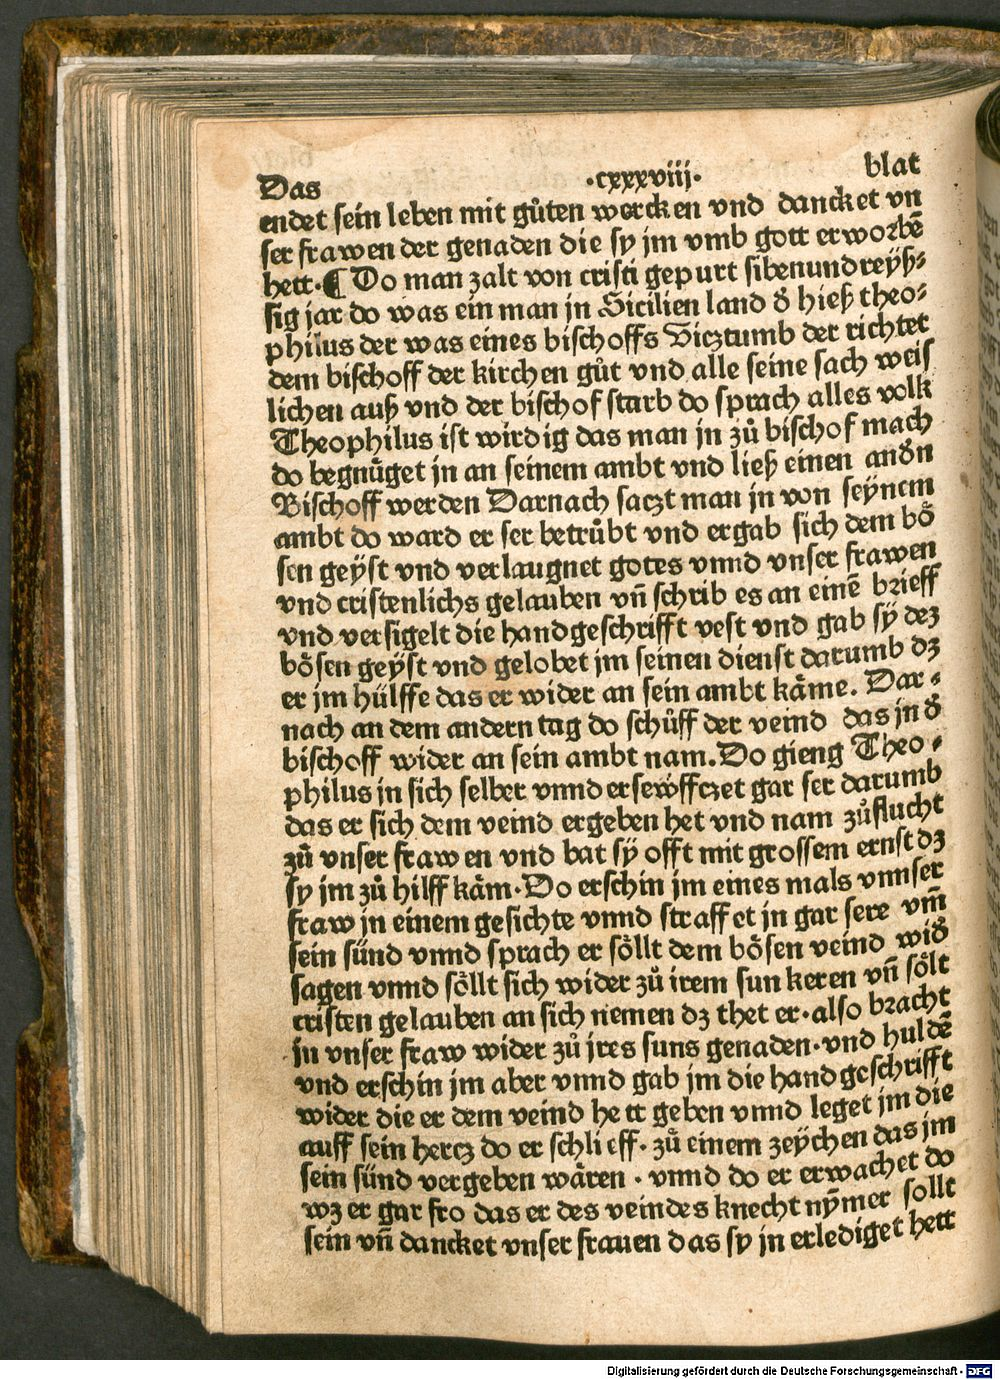 Das ·cxxxviij· blat
endet sein leben mit gůten wercken vnd dancket vn
ser frawen der genaden die sy jm vmb gott erworbē
hett·¶ Do man zalt von cristi gepurt sibenundreyß⸗
sig jar do was ein man jn Sicilien land d̕ hieß theo⸗
philus der was eines bischoffs Vicztumb der richtet
dem bischoff der kirchen gůt vnd alle seine sach weis
lichen auß vnd der bischof starb do sprach alles volk
Theophilus ist wirdig das man jn zů bischof mach
do begnůget jn an seinem ambt vnd ließ einen and̕n
Bischoff werden Darnach saczt man jn von seÿnem
ambt do ward er ser betrůbt vnd ergab sich dem bö
sen geÿst vnd verlaugnet gotes vnnd vnser frawen
vnd cristenlichs gelauben vn̄ schrib es an einē brieff
vnd versigelt die handgeschrifft vest vnd gab sÿ dez
bösen geÿst vnd gelobet jm seinen dienst darumb dz
er jm hülffe das er wider an sein ambt käme. Dar⸗
nach an dem andern tag do schůff der veind das jn d̕
bischoff wider an sein ambt nam. Do gieng Theo⸗
philus jn sich selber vnnd ersewffczet gar ser darumb
das er sich dem veind ergeben het vnd nam zůflucht
zů vnser frawen vnd bat sÿ offt mit grossem ernst dz
sy jm zů hilff käm· Do erschin jm eines mals vnnser
fraw jn einem gesichte vnnd straffet jn gar sere vm̄
sein sünd vnnd sprach er söllt dem bösen veind wid̕
sagen vnnd söllt sich wider zů irem sun keren vn̄ sölt
cristen gelauben an sich nemen dz thet er· also bracht
jn vnser fraw wider zů jres suns genaden· vnd huldē
vnd erschin jm aber vnnd gab jm die handgeschrifft
wider die er dem veind hett geben vnnd leget jm die
auff sein hercz do er schlieff· zů einem zeÿchen das jm
sein sünd vergeben wären · vnnd do er erwachet do
wz er gar fro das er des veindes knecht nÿmer sollt
sein vn̄ dancket vnser frauen das sy jn erlediget hett
Digitalisierung gefördert durch die Deutsche Forschungsgemeinschaft - DFG